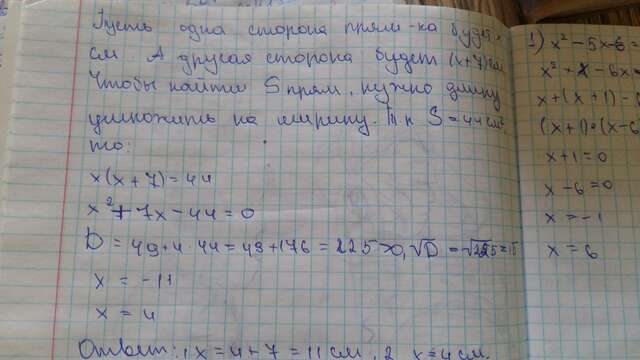 Пусть одна сторона прям-ка будет x
см. А другая сторона будет (x+7) см
Чтобы найти S прям. нужно длину
умножить на ширину. Тк S = 44 см²
то:
x(x+7)=44
x²+7x-44=0
D = 49+4·44=49+176=225>0, √D = √225=15
x = -11
x = 4
Ответ: 1x=4+7=11см, 2 x=4см
1) x²-5x-6=
x²+x-6x
x+(x+1)-6
(x+1)•(x-6)
x+1=0
x-6=0
x=-1
x=6